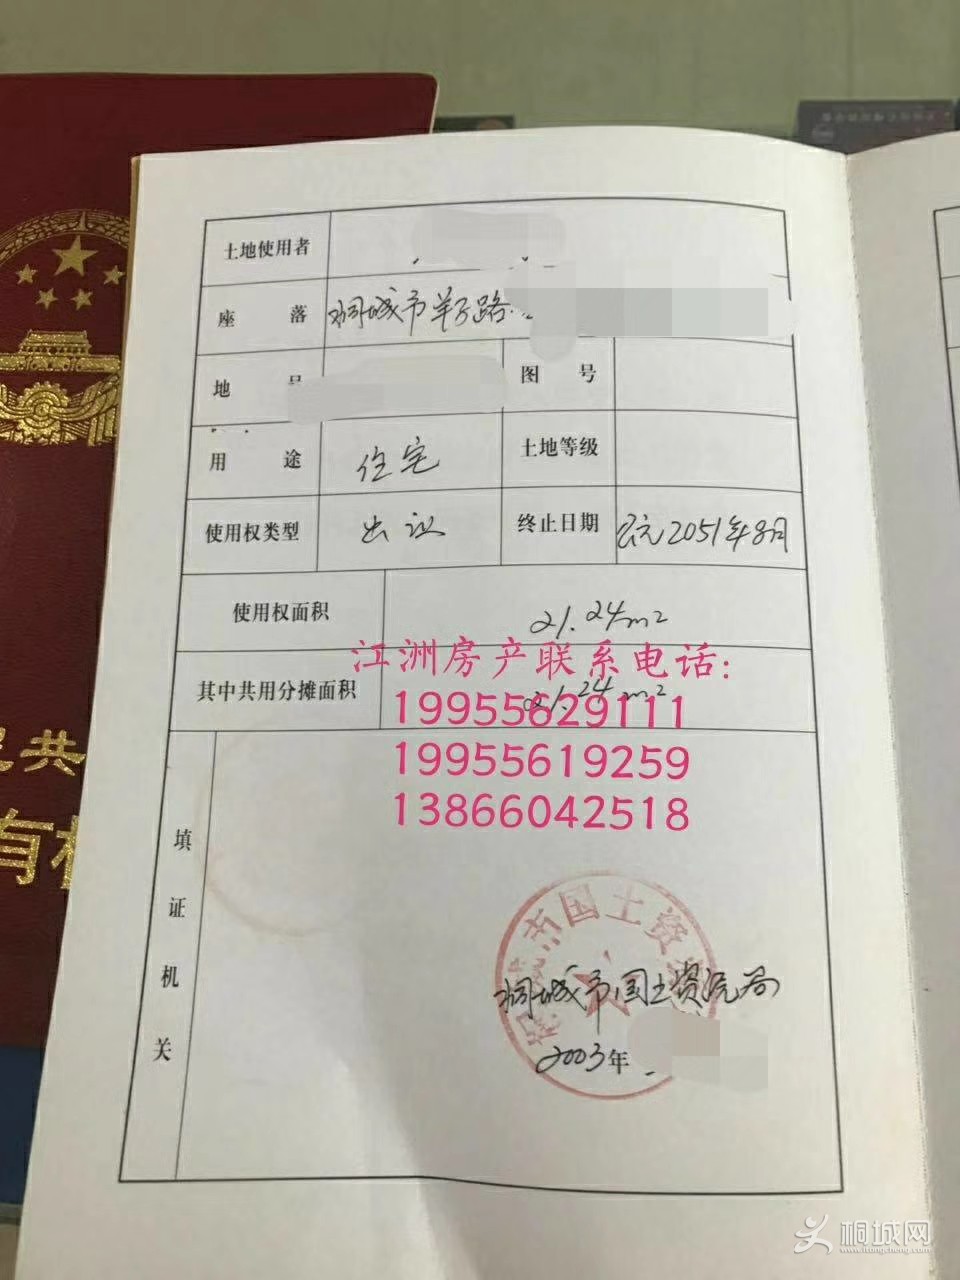 土地使用者
座 落 桐城市羊子路
地 号
图 号
用 途 住宅 土地等级
使用权类型 出让 终止日期 公元2051年8月
使用权面积 21.24m²
其中共用分摊面积 21.24m²
江洲房产联系电话:
19955629111
19955619259
13866042518
填证机关
市国土资
桐城市国土资源局
2003年
共
有
桐城网
www.itongcheng.com